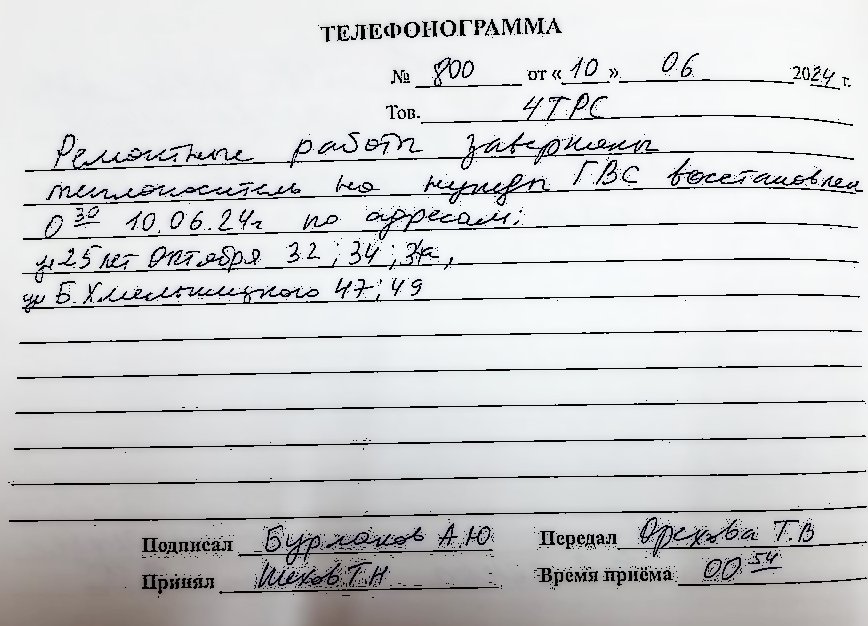 ТЕЛЕФОНОГРАММА
№ 800 от «10» 06 2024 г.
Тов. 4ТРС
Ремонтные работы завершены
теплоноситель на нужды ГВС восстановлен
0 30 10.06.24г по адресам:
ул 25 лет Октября 32; 34; 34а,
ул Б. Хмельницкого 47; 49
Подписал Бурлаков А.Ю Передал Орехова Т.В
Принял Шехов Т.Н Время приёма 00 54